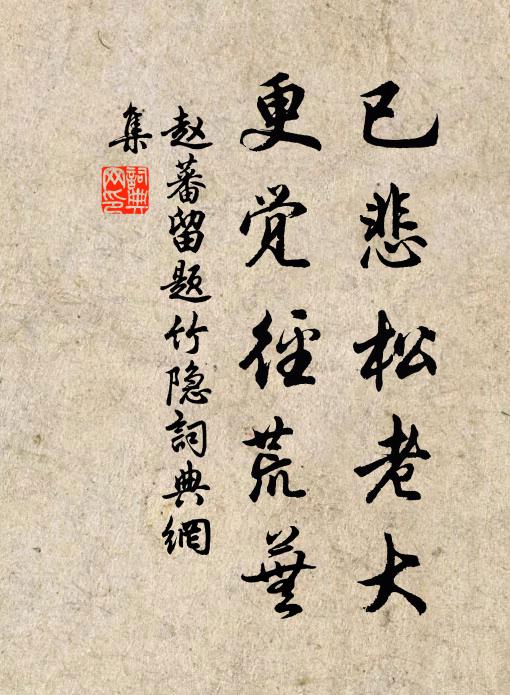 已悲松老大
更觉径荒芜
赵蕃留题竹隐詞典網
集
詞典
网印